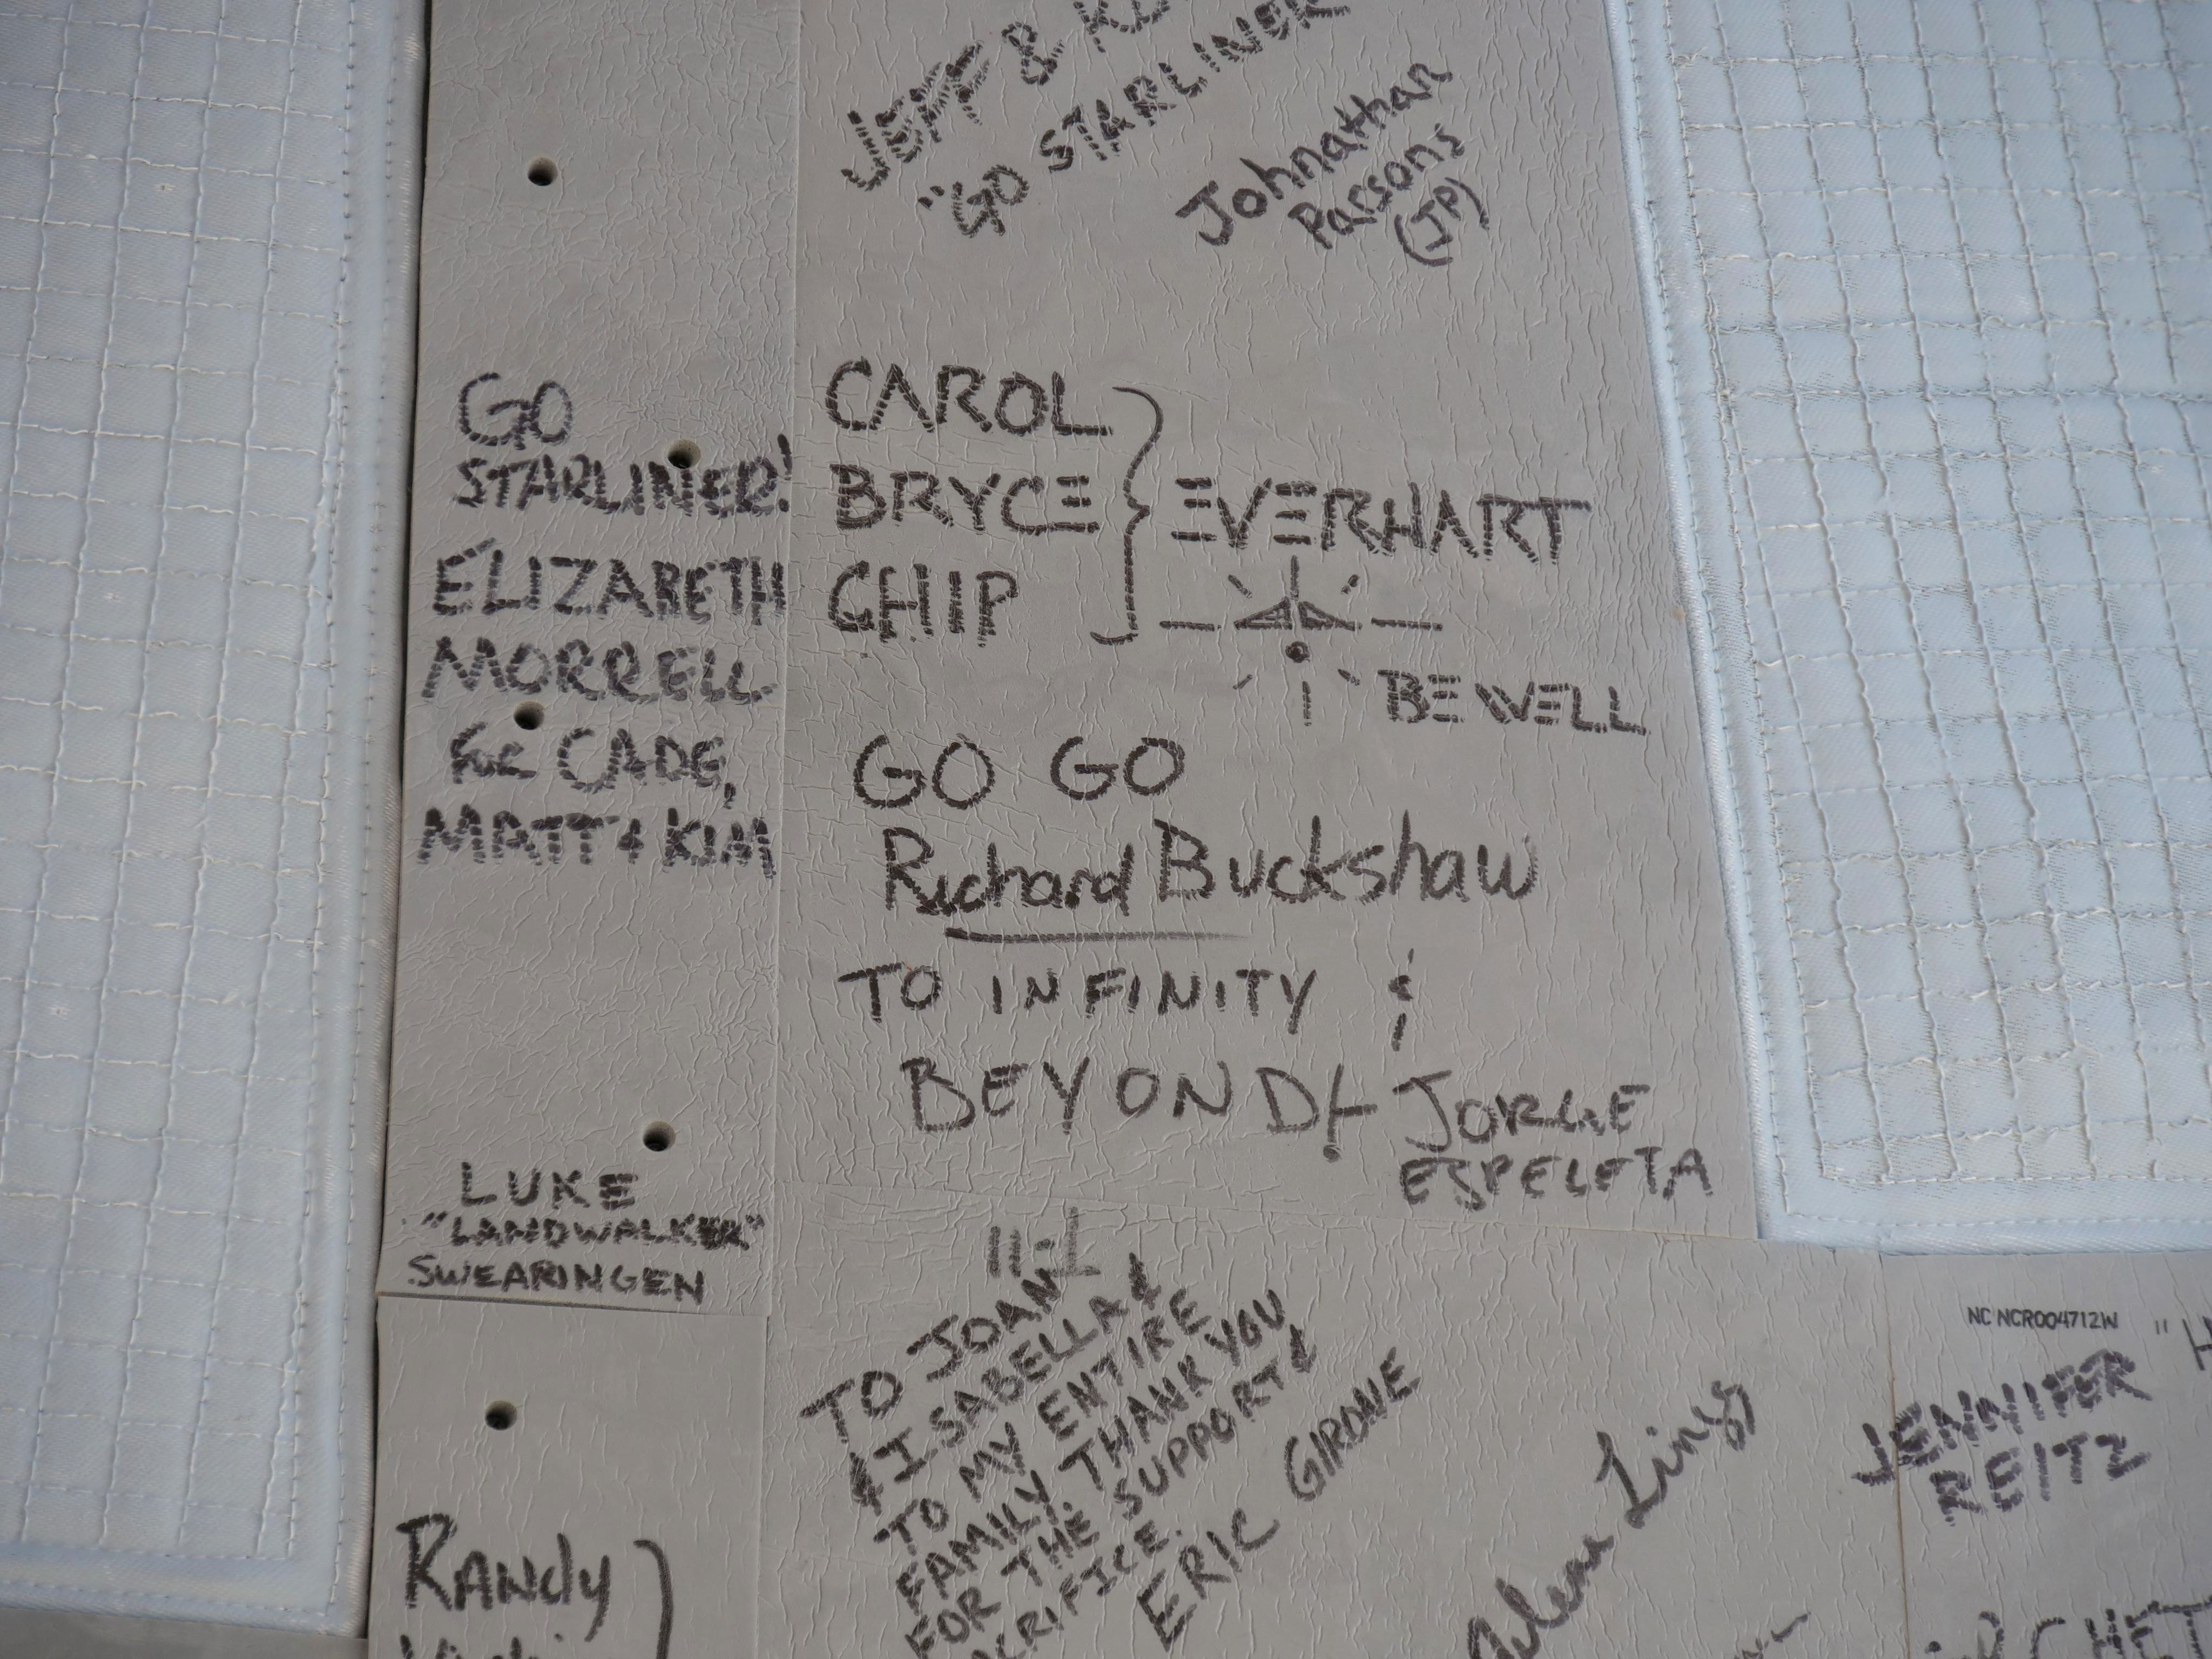 JEFF &
"GO STARLINER
Johnathan
Parsons
(JP)
GO
STARLINER!
ELIZABETH
MORRELL
for CADE,
MATT & KIM
CAROL
BRYCE
CHIP
EVERHART
BE WELL
GO GO
Richard Buckshaw
TO INFINITY &
BEYOND!
JORGE
ESPELETA
LUKE
"LANDWALKER"
SWEARINGEN
11-1
TO JOAN
& ISABELLA &
TO MY ENTIRE
FAMILY. THANK YOU
FOR THE SUPPORT &
ERIC GIRONE
NC NCR004712W
JENNIFER
REITZ
RANdy